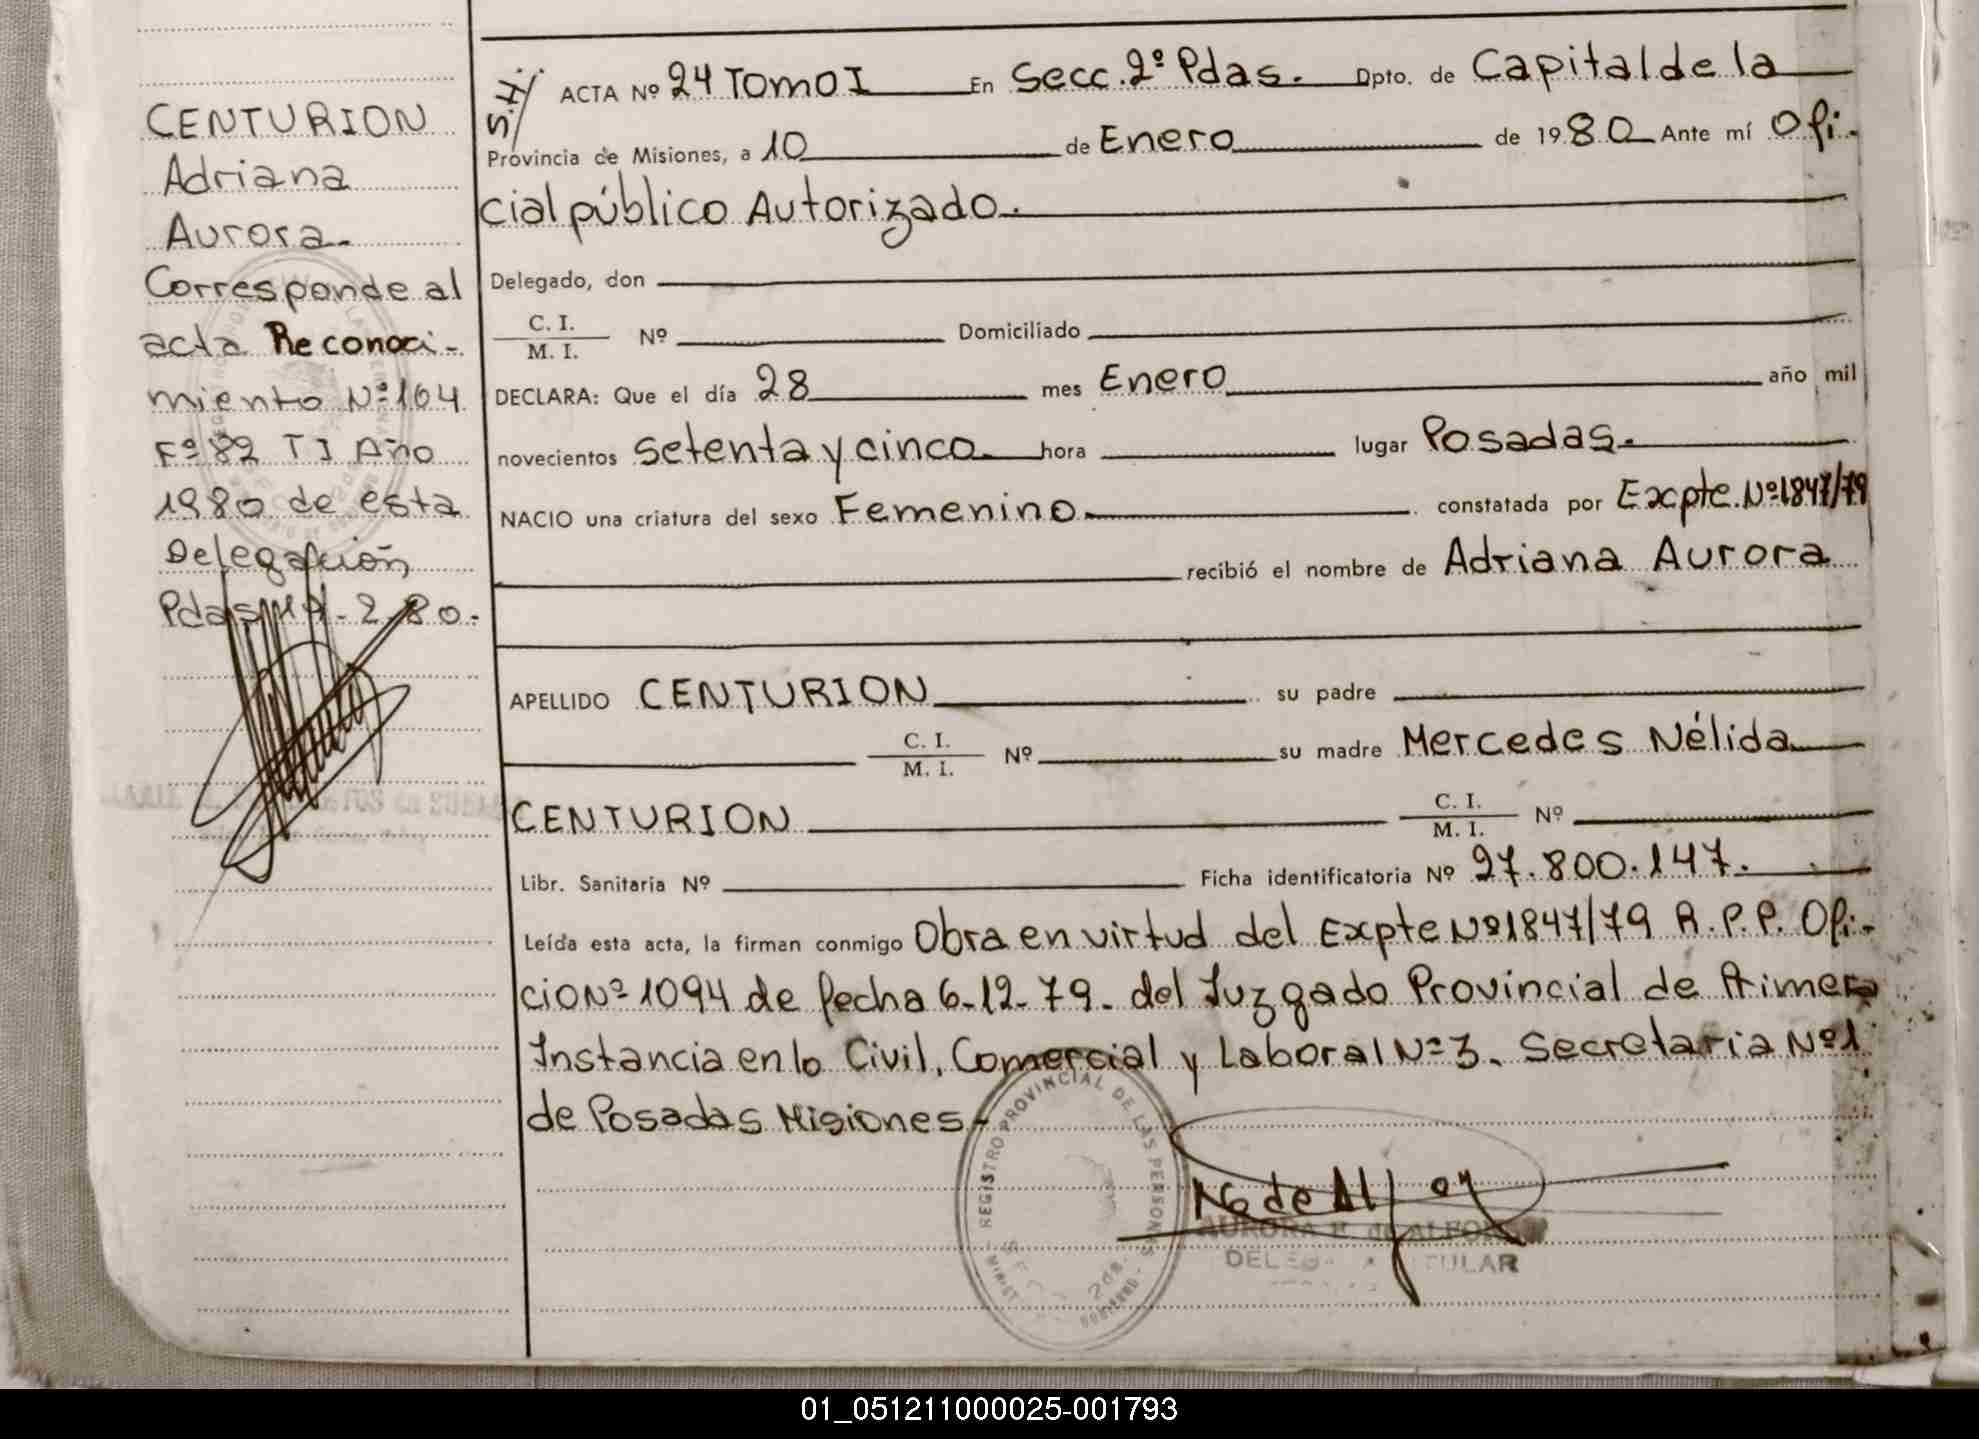 CENTURION
Adriana
Aurora.
Corresponde al
acta Reconoci-
miento Nº 164
Fº 82 T I Año
1980 de esta
Delegación
Pdas
S.H/ ACTA Nº 24 Tomo I En Secc. 2º Pdas. Dpto. de Capital de la
Provincia de Misiones, a 10 de Enero de 1980 Ante mí Ofi-
cial público Autorizado.
Delegado, don
C. I.
M. I. Nº Domiciliado
DECLARA: Que el día 28 mes Enero año mil
novecientos setenta y cinco hora lugar Posadas.
NACIO una criatura del sexo Femenino constatada por Excpte. Nº 1847/79
recibió el nombre de Adriana Aurora
APELLIDO CENTURION su padre
C. I.
M. I. Nº su madre Mercedes Nélida
CENTURION C. I.
M. I. Nº
Libr. Sanitaria Nº Ficha identificatoria Nº 27.800.147.
Leída esta acta, la firman conmigo Obra en virtud del Excpte Nº 1847/79 R.P.P. Ofi-
cio Nº 1094 de fecha 6-12-79. del Juzgado Provincial de Primera
Instancia en lo Civil, Comercial y Laboral Nº 3. Secretaria Nº 1
de Posadas Misiones-
REGISTRO PROVINCIAL DE LAS PERSONAS
AURORA de
01_051211000025-001793